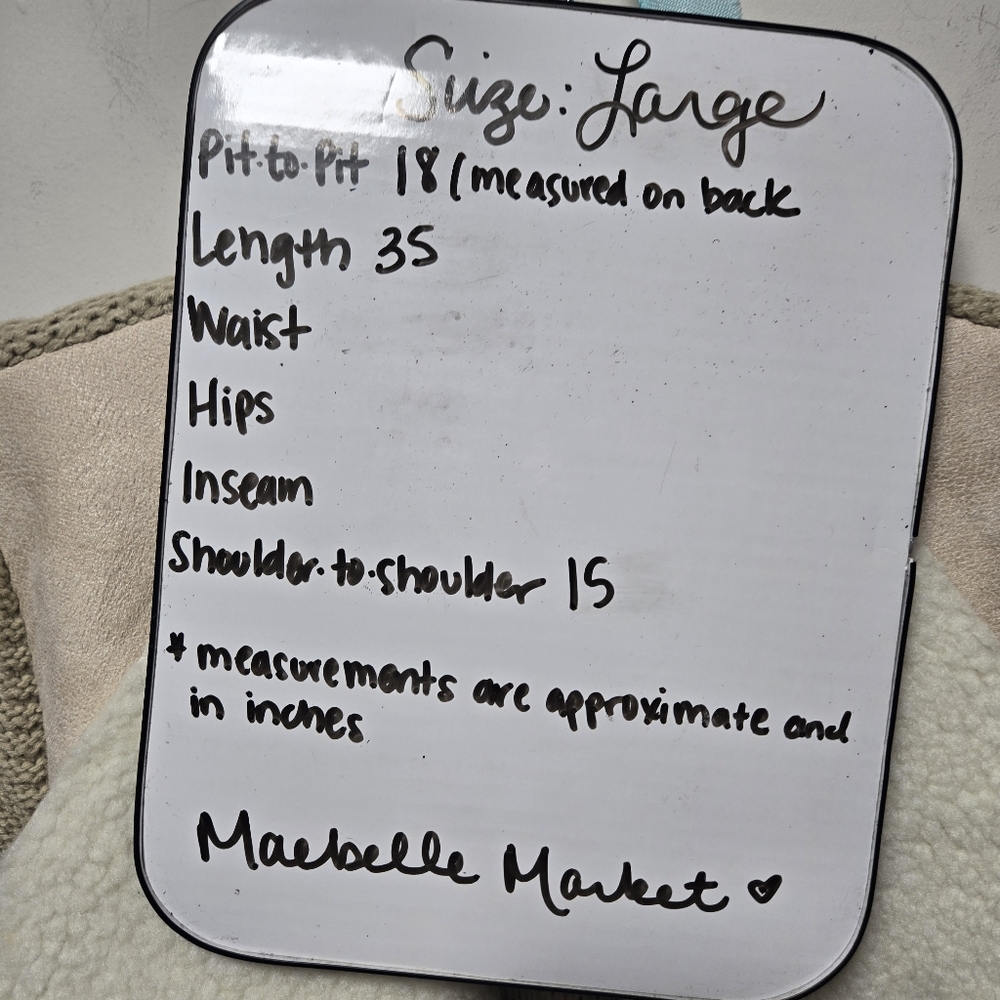 Size: Large
Pit-to-Pit 18 (measured on back
Length 35
Waist
Hips
Inseam
Shoulder-to-shoulder 15
* measurements are approximate and
in inches
Maebelle Market ♡